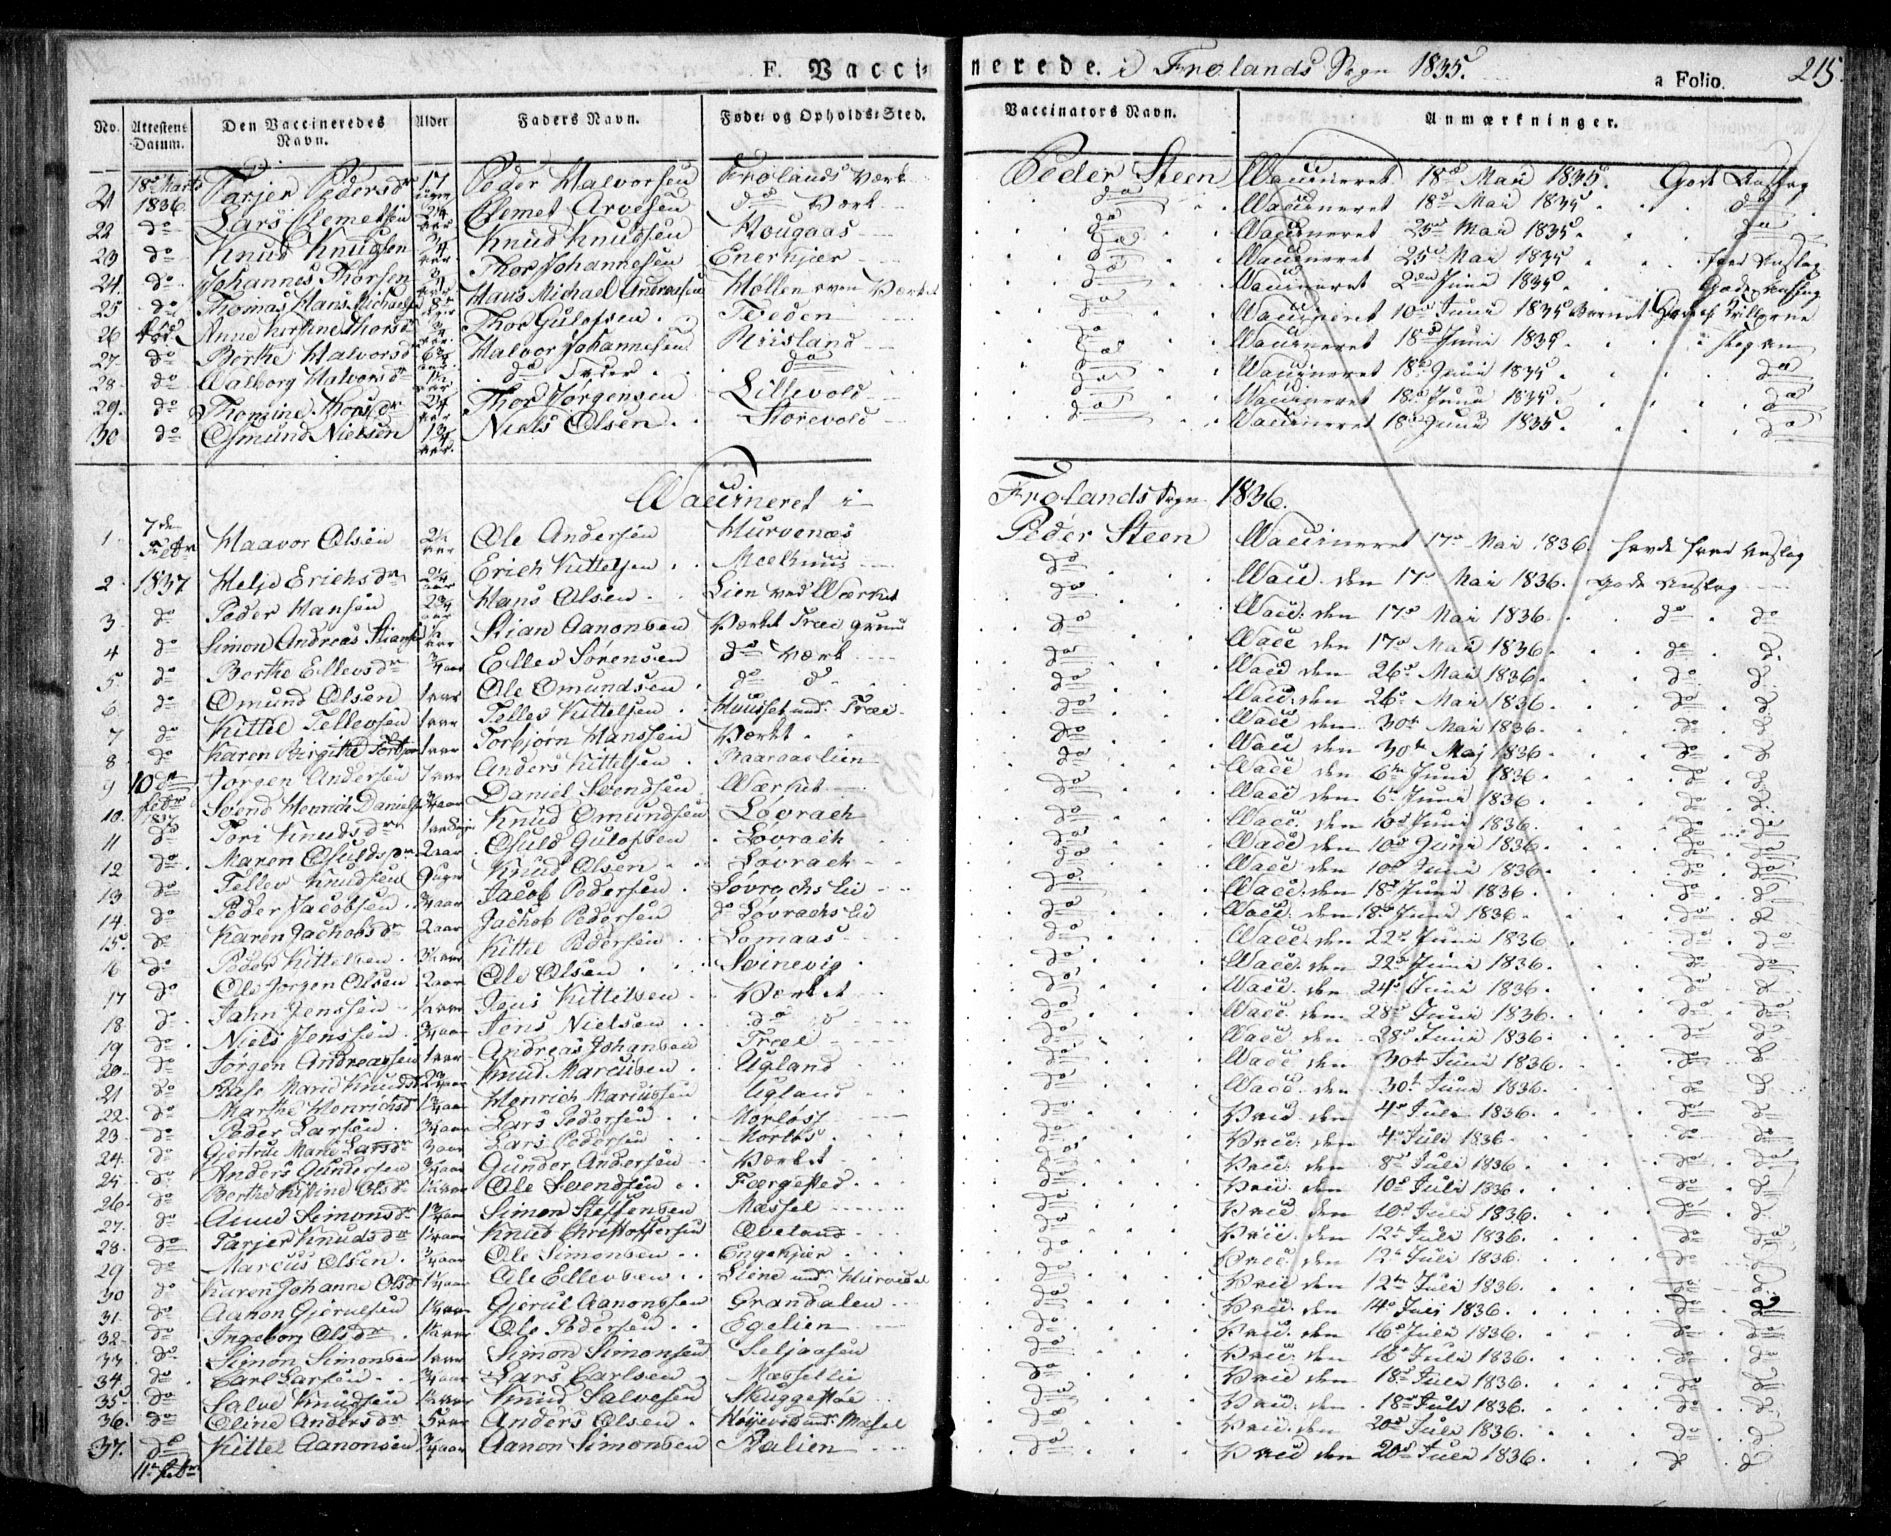 F. Vaccinerede. i Frolands Sogn 1835. a Folio. 215.
No. Attestens Datum. Den Vaccineredes Navn. Alder Faders Navn. Føde- og Opholds-Sted. Vaccinators Navn. Anmærkninger.
21 18de Marts 1836 Tarjer Pedersdr 17 uger Peder Halvorsen Frolands Værk Peder Steen Vaccineret 18de Mai 1835. Gode Anslag
22 do Lars Clemetsen Clemet Arvesen do Værk do Vaccineret 18de Mai 1835 do
23 do Knud Knudsen 3/4 aar Knud Knudsen Hougaas do Vaccineret 25de Mai 1835. do
24. do Johannes Thorsen Thor Johannesen Enerhjær do Vaccineret 25de Mai 1835 Anslag
25 do Thomas Hans Michaelsen Hans Michael Andreasen Møllen Værket do Vaccineret 2den Juni 1835.
26 Anne Kirstine Thorsdr 3/4 aar. Thor Gulofsen Tveden do Vaccineret 10de Juni 1835 Barnet
27 do Berthe Halvorsdr Halvor Johannesen Risland do Vaccineret 18de Juni 1835.
28 do Valborg Halvorsdr do do do Vaccineret 18de Juni 1835. do
29. do Thomine Thorsdr Thor Jørgensen Lillevold do Vaccineret 18de Juni 1835. do
30 do Osmund Nielsen 1 3/4 aar. Niels Olsen Storevold do Vaccineret 18de Juni 1835. do
Vaccineret i Frolands Sogn 1836.
1 7den Febr Haavor Olsen 2 1/2 aar Ole Andersen Hurvenæs Peder Steen Vaccineret 17de Mai 1836. Anslag
2 1837 Helje Erichsdr Erich Kittelsen do Vacc. den 17de Mai 1836. gode Anslag
3 do Peder Hansen 2 3/4 aar Hans Olsen Lien ved Værket do Vacc. den 17de Mai 1836 do do
4 do Simon Andreas Stiansen Stian Aanonsen Værket Træe grund do Vacc den 17de Mai 1836 do do
5 do Berthe Ellevsdr 3/4 aar Ellev Sørensen do Værk do Vacc den 26de Mai 1836 do do
6 do Omund Olsen 1 aar Ole Omundsen do do do Vacc. den 26de Mai 1836 do do
7 do Kittel Tellevsen 1 aar Tellev Kittelsen Træe do Vacc den 30te Mai 1836 do do
8 do Karen Birgithe 1 aar Torbjørn Hanssen Værket do Vacc den 30te Maj 1836 do do
9 10de Jorgen Andersen 1 aar Anders Kittelsen Baaraaslien do Vacc den 6te Juni 1836 do do
10. Febr 1837 Svend Henrich Danielsen 3/4 aar Daniel Svendsen Værket do Vacc den 6te Juni 1836 do do
11 do Tori Knudsdr Knud Omundsen Løvrach do Vacc. den 10de Juni 1836 do do
12 do Maren Osuldsdr 2 aar Osuld Gulofsen Løvrach do Vacc den 10de Juni 1836 do do
13 do Tellev Knudsen 9 uger Knud Olsen Løvrach do Vacc den 10de Juni 1836 do do
14 do Peder Jacobsen 3/4 aar Jacob Pedersen Løvrachs Lie do Vacc. den 18de Juni 1836 do do
15 do Karen Jachobsdr 2 aar Jachob Pedersen do Løvrachs Lie do Vacc. den 18de Juni 1836 do do
16 do Peder Kittelsen Kittel Pedersen Lomaas do Vacc. den 22de Juni 1836 do do
17 do Ole Jorgen Olsen 2 aar Ole Olsen Svinevig do Vacc. den 22de Juni 1836. do do
18. do Jahn Jenssen Jens Kittelsen Værket do Vacc. den 24de Juni 1836 do do
19 do Niels Jenssen 3/4 aar Jens Nielsen do do do Vacc den 28de Juni 1836 do do
20. do Jørgen Andreassen 1 aar Andreas Johansen Træe do Vacc den 28de Juni 1836 do do
21 do Marie Knudsdr 2 3/4 aar Knud Marcusen Ugland do Vacc den 30te Juni 1836. do do
22. do Marthe Henrichsdr Henrich Marcussen Ugland do Vacc. den 30te Juni 1836 do do
23. do Peder Larsen 3/4 aar Lars Pedersen do den 4de Juli 1836 do do
24. do Gjertrud Marie Larsdr 3 aar Lars Pedersen do den 4de Juli 1836 do do
25 do Anders Gundersen 3/4 aar Gunder Andersen Værket do den 8de Juli 1836 do do
26. do Berthe Kistine Olsdr Ole Svendsen Færgested do den 10de Juli 1836 do do
27. do Anne Simonsdr Simon Steffensen Mæssel do den 10de Juli 1836 do do
28. do Tarjer Knudsdr Knud Christoffersen Oveland do den 12te Juli 1836 do do
29 do Marcus Olsen 3/4 aar Ole Simonsen Engekjær do den 12te Juli 1836 do do
30 do Karen Johanne Olsdr Ole Ellevsen Liene und. Hurvedal do den 12te Juli 1836 do do
31. do Aanon Gjerulsen Gjerul Aanonssen Grandalen do den 14de Juli 1836. do do
32. do Ingeborg Olsdr Ole Pedersen Egelien do den 16de Juli 1836. do do
33 do Simon Simonsen 1 aar Simon Simonsen Seljaasen do den 16de Juli 1836. do do
34. do Carl Larsen 3/4 aar Lars Carlsen Mæssellie do den 18de Juli 1836 do do
35 do Salve Knudsen Knud Salvesen Skuggestøe do den 18de Juli 1836. do do
36. do Oline Andersdr 5 aar Anders Olsen Høyeveis und. Mæsel do den 20de Juli 1836. do do
37. do Kittel Aanonsen 3/4 aar Aanon Simonsen Balien do den 20de Juli 1836. do do
11te Febr